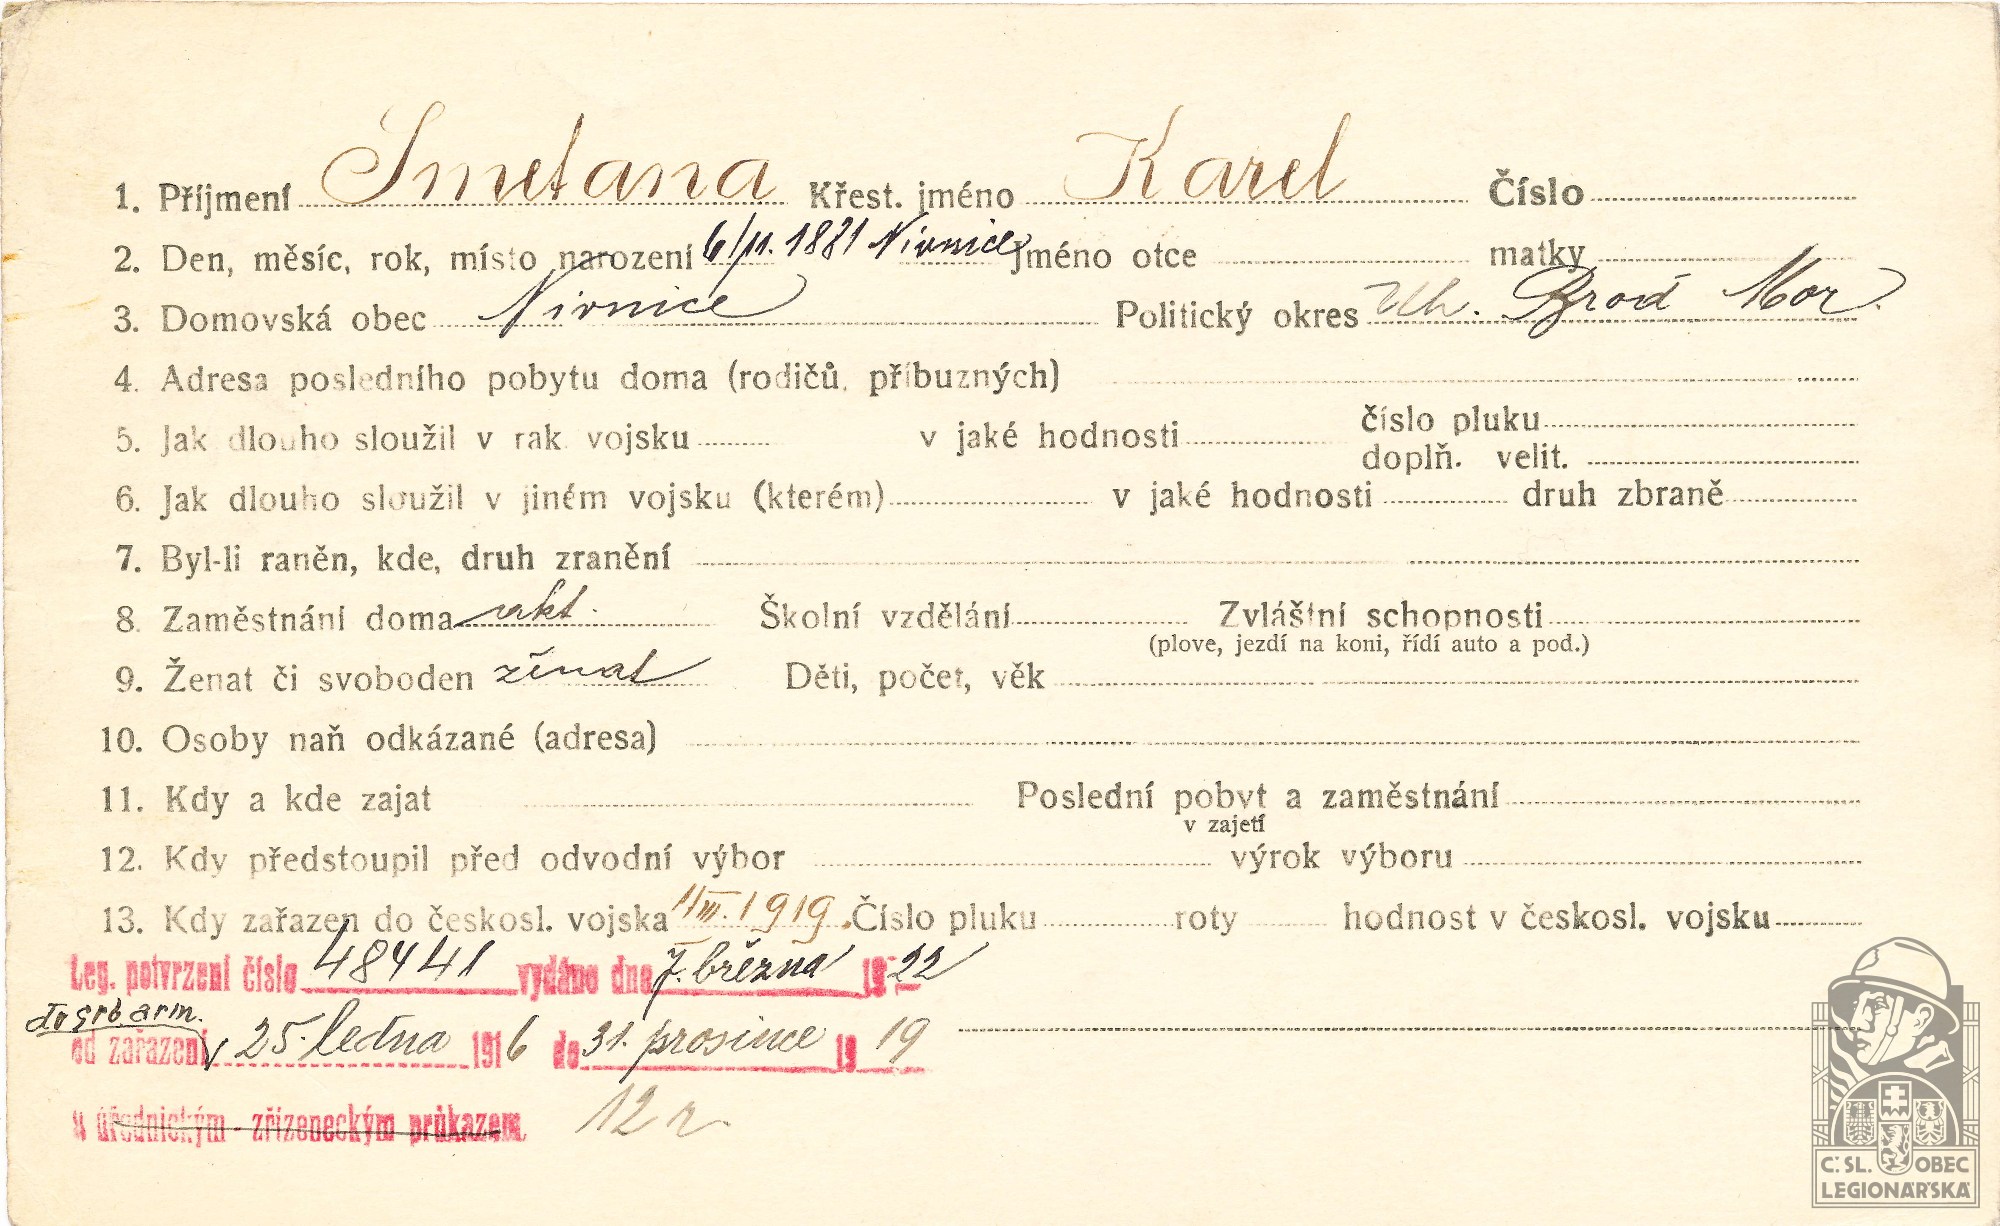 1. Příjmení Smetana Křest. jméno Karel Číslo
2. Den, měsíc, rok, místo narození 6/11. 1881 Nivnice Jméno otce matky
3. Domovská obec Nivnice Politický okres Uh. Brod Mor.
4. Adresa posledního pobytu doma (rodičů, příbuzných)
5. Jak dlouho sloužil v rak. vojsku v jaké hodnosti číslo pluku
doplň. velit.
6. Jak dlouho sloužil v jiném vojsku (kterém) v jaké hodnosti druh zbraně
7. Byl-li raněn, kde, druh zranění
8. Zaměstnání doma akt. Školní vzdělání Zvláštní schopnosti
(plove, jezdí na koni, řídí auto a pod.)
9. Ženat či svoboden ženat Děti, počet, věk
10. Osoby naň odkázané (adresa)
11. Kdy a kde zajat Poslední pobyt a zaměstnání
v zajetí
12. Kdy předstoupil před odvodní výbor výrok výboru
13. Kdy zařazen do českosl. vojska 1/III. 1919. Číslo pluku roty hodnost v českosl. vojsku
Leg. potvrzení číslo 48441 vydáno dne 7. března 1922
do srb. arm.
od zařazení 25. ledna 1916 do 31. prosince 1919
s úřednickým - zřízeneckým průkazem. 12 r.
Č. SL. OBEC
LEGIONÁŘSKÁ